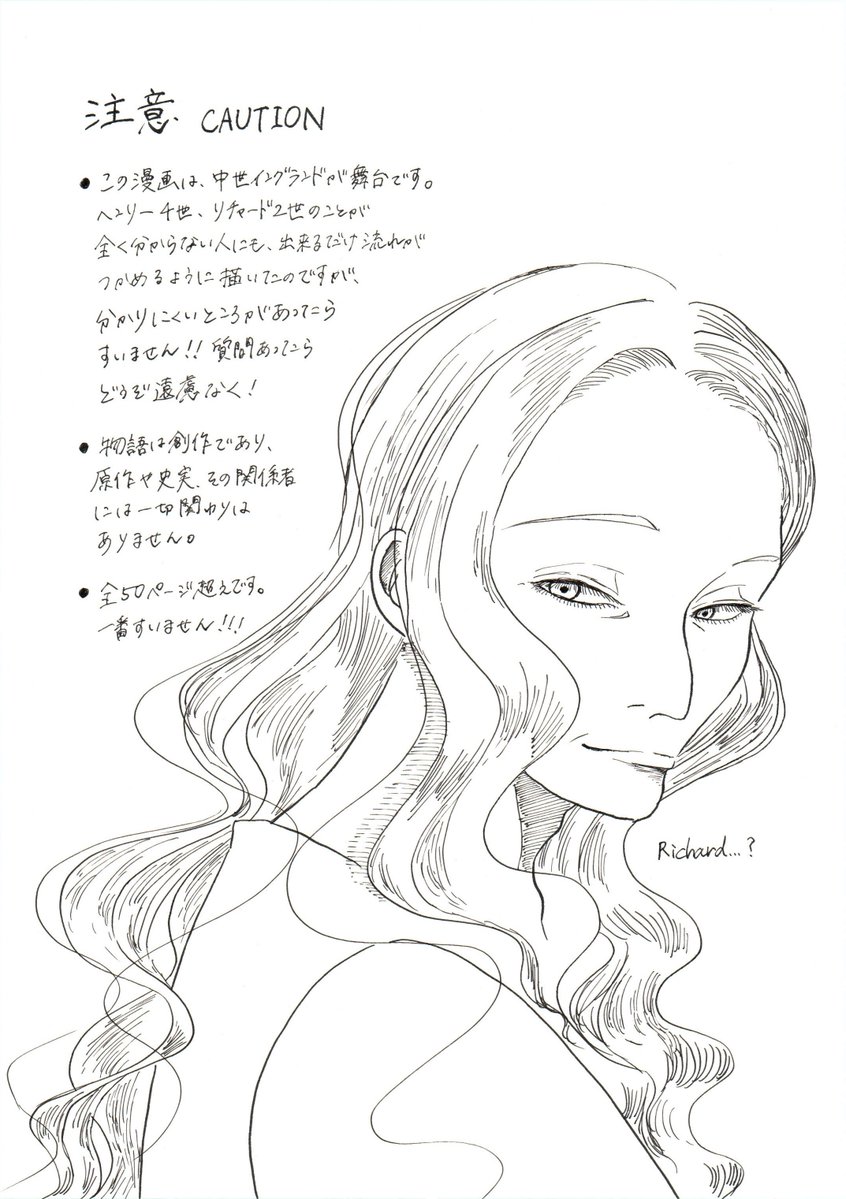 注意 CAUTION
● この漫画は、中世イングランドが舞台です。
ヘンリー4世、リチャード2世のことが
全く分からない人にも、出来るだけ流れが
つかめるように描いてたのですが、
分かりにくいところがあったら
すいません!! 質問あったら
どうぞ遠慮なく!
● 物語は創作であり、
原作や史実、その関係者
には一切関わりは
ありません。
● 全50ページ超えです。
一番すいません!!!
Richard...?